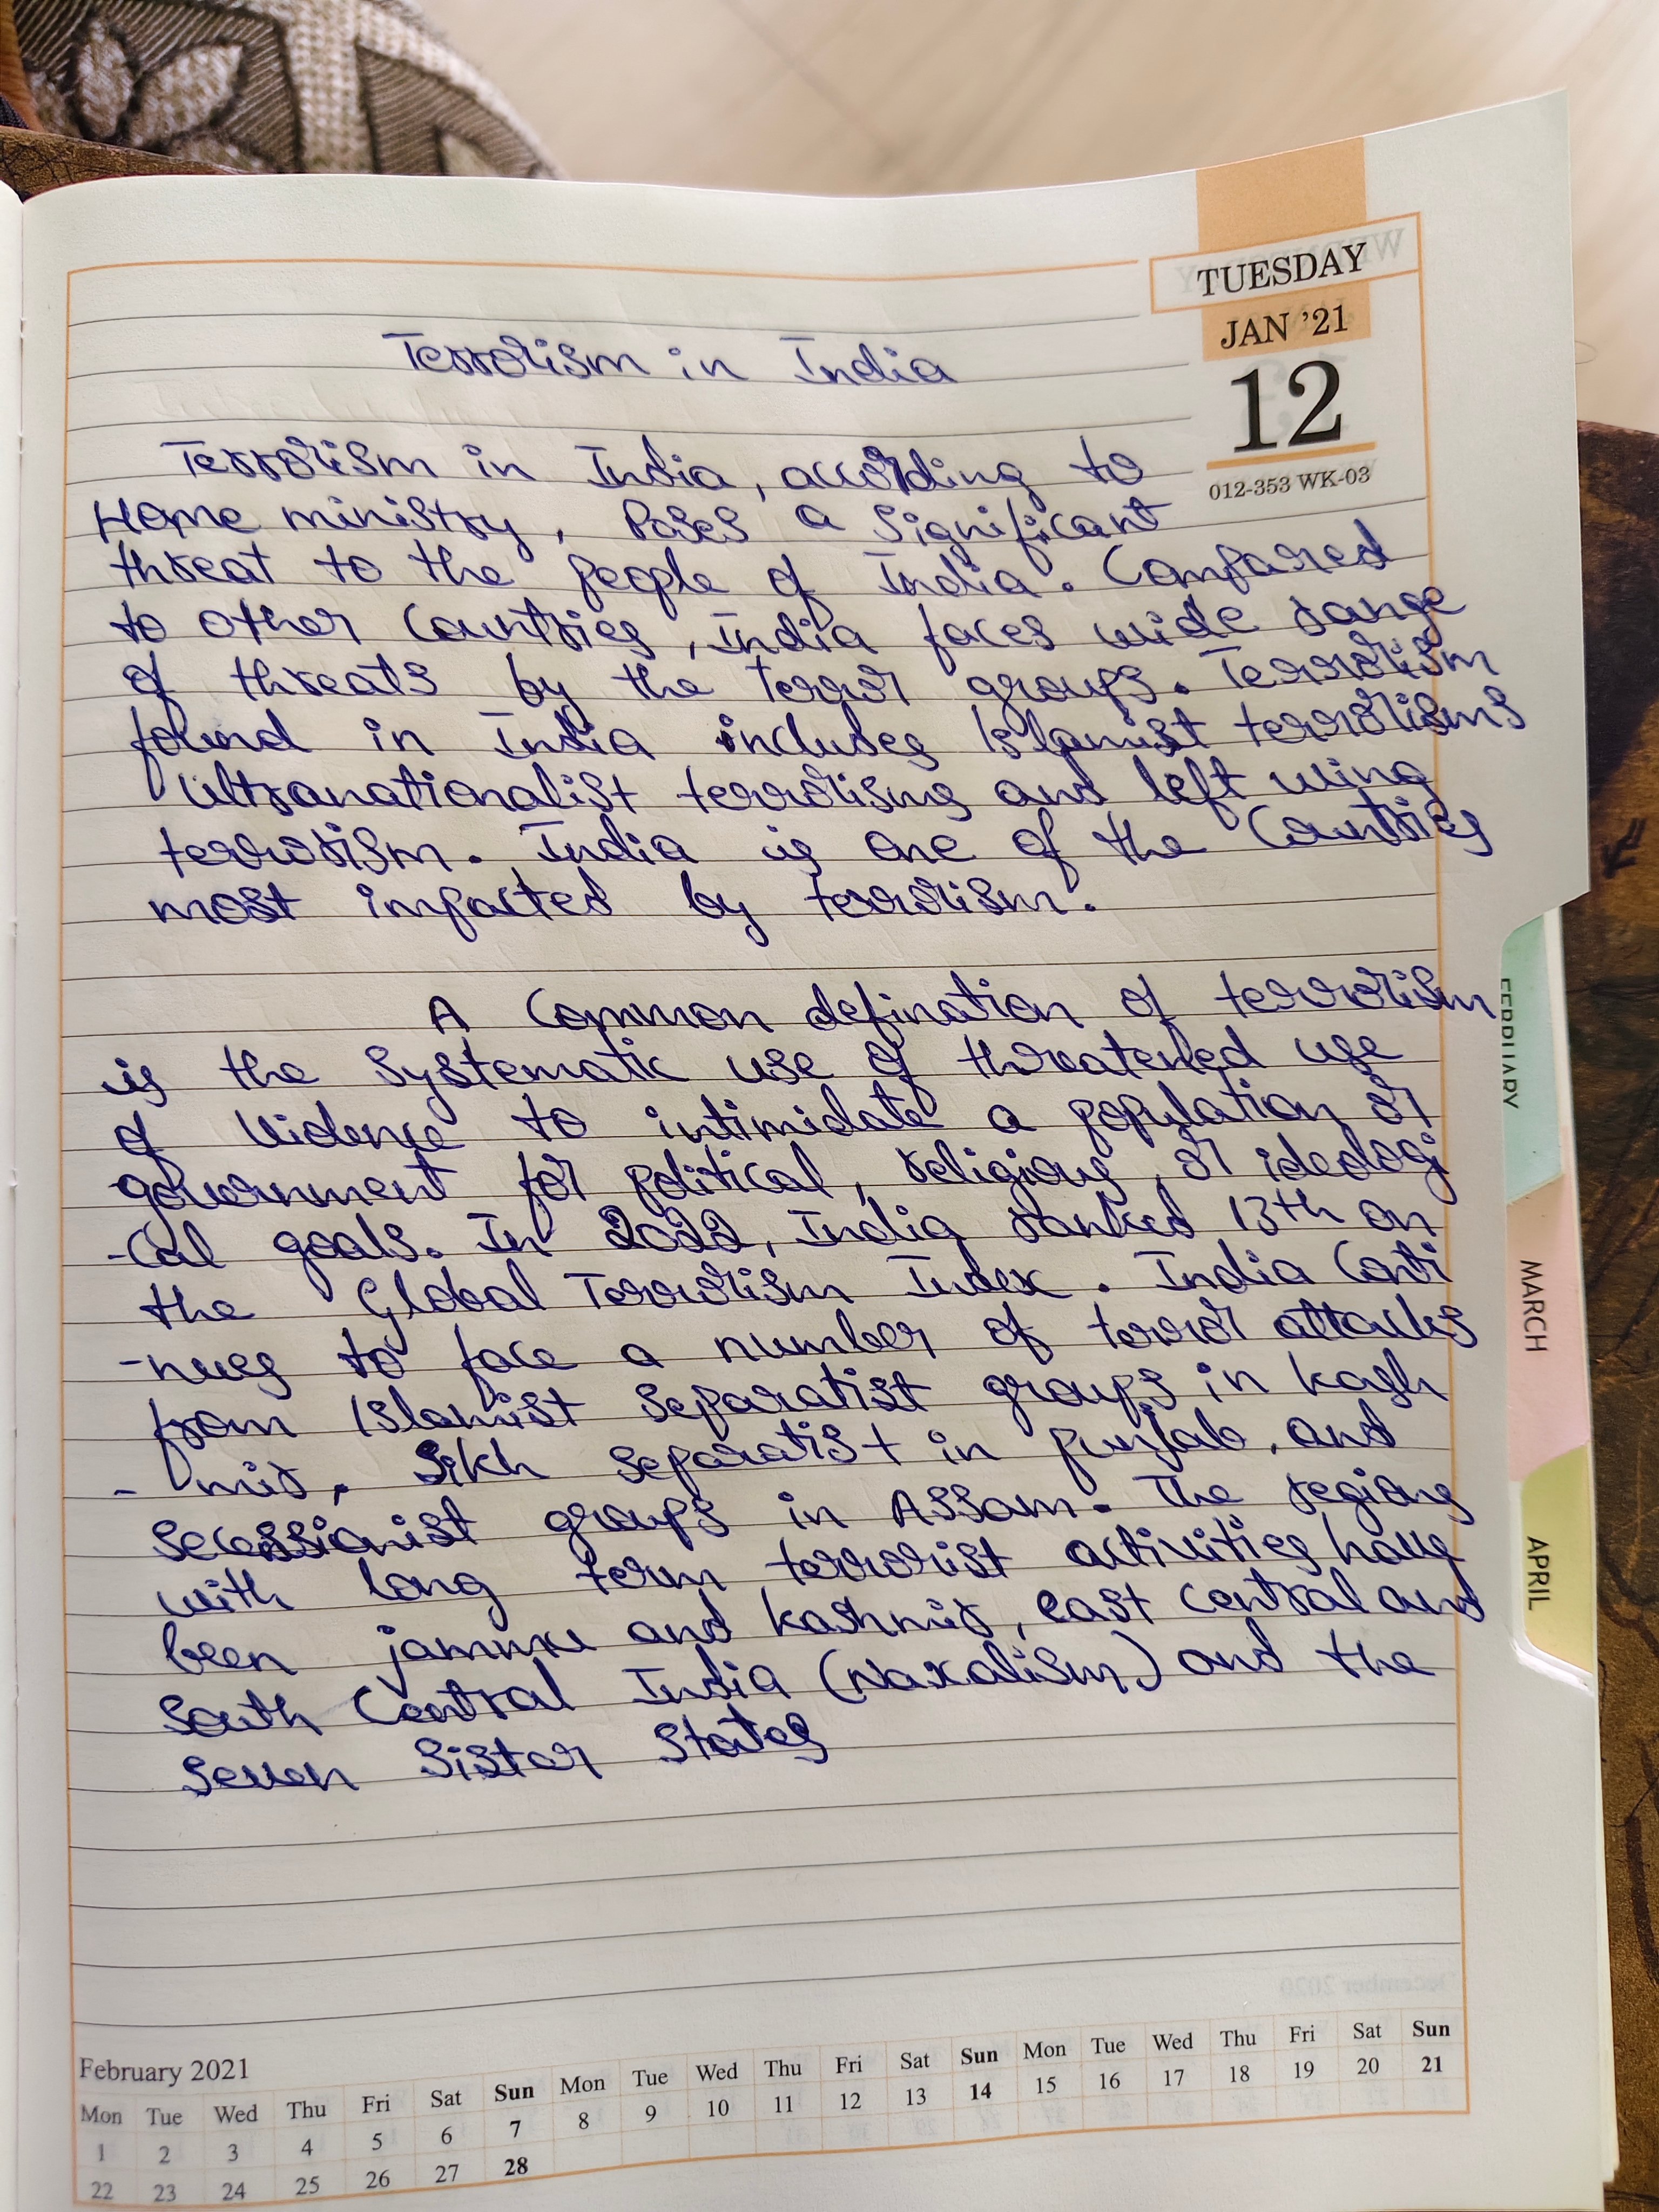 TUESDAY
JAN '21
12
012-353 WK-03
Terrorism in India
Terrorism in India, according to
Home ministry, Poses a significant
threat to the people of India. Compared
to other Countries, India faces wide range
of threats by the terror groups. Terrorism
found in India includes Islamist terrorisms
Ultranationalist terrorisms and left wing
terrorism. India is one of the Countries
most impacted by terrorism.
A Common defination of terrorism
is the systematic use of threatened use
of Violence to intimidate a population or
government for political, religious, or ideologi
-Cal goals. In 2022, India ranked 13th on
the Global Terrorism Index. India Conti
-nues to face a number of terror attacks
from Islamist separatist groups in kash
-mir, Sikh separatist in punjab, and
secessionist groups in Assam. The regions
with long term terrorist activities have
been jammu and kashmir, east central and
South Central India (Naxalism) and the
seven sister states
FEBRUARY
MARCH
APRIL
February 2021
Mon Tue Wed Thu Fri Sat Sun Mon Tue Wed Thu Fri Sat Sun Mon Tue Wed Thu Fri Sat Sun
1 2 3 4 5 6 7 8 9 10 11 12 13 14 15 16 17 18 19 20 21
22 23 24 25 26 27 28